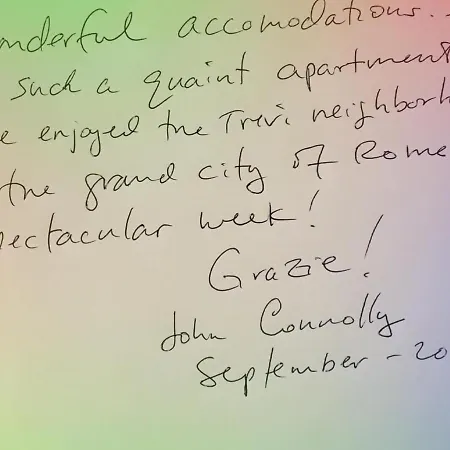 onderful accomodations..
such a quaint apartment
e enjoyed the Trevi neighborh
the grand city of Rome
pectacular week!
Grazie!
John Connolly
September - 20